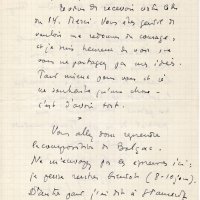 Besoin de recevoir votre lettre
du 14. Merci. Vous êtes gentil de
vouloir me redonner du courage,
et je suis heureux de voir que
vous ne partagez pas mes idées.
Tant mieux pour vous et je
ne souhaite qu'une chose –
c'est d'avoir tort.
*
Vous allez donc reprendre
la composition de Balzac.
Ne m'envoyez pas les épreuves ici ;
je pense rester bientôt (8-10 jours).
D'autre part j'ai dit à